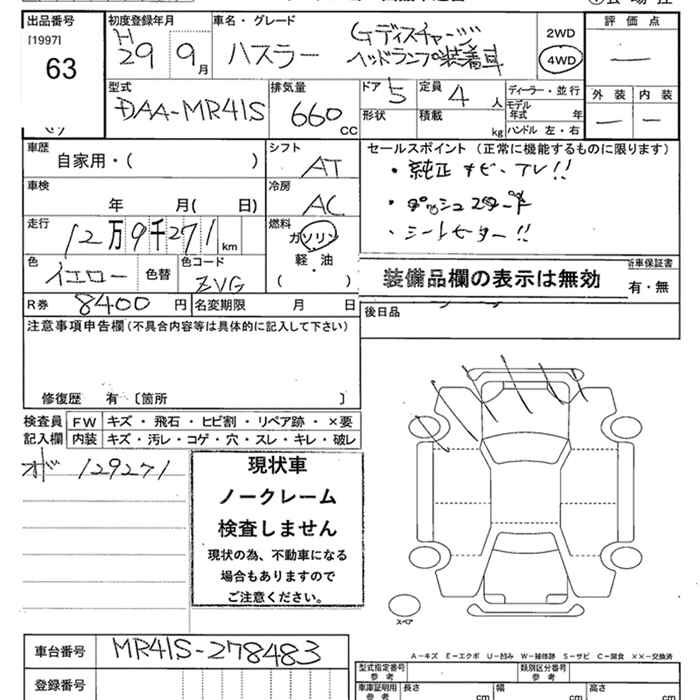 出品番号 初度登録年月 車名・グレード 評価点
[1997] H 29 9月 ハスラー Gディスチャージ 2WD —
63 ヘッドランプ装着車 4WD
型式 排気量 ドア 5 定員 4人 ディーラー・並行 外装 内装
DAA-MR41S 660 CC 形状 積載 kg モデル年式 年 — —
ハンドル 左・右
車歴 シフト セールスポイント (正常に機能するものに限ります)
自家用・( ) AT ・純正ナビ・TV!!
車検 冷房
年 月( 日) AC
走行 燃料 ・シートヒーター!!
12万9千271km ガソリン
色 色替 色コード 軽・油 装備品欄の表示は無効 新車保証書
イエロー ZVG ( ) 有・無
R券 8400円 名変期限 月 日 後日品
注意事項申告欄(不具合内容等は具体的に記入して下さい)
修復歴 有〔箇所 〕
検査員 FW キズ・飛石・ヒビ割・リペア跡・×要
記入欄 内装 キズ・汚レ・コゲ・穴・スレ・キレ・破レ
129271 現状車
ノークレーム
検査しません
現状の為、不動車になる
場合もありますので
ご注意ください。
スペア
車台番号 MR41S-278483
A-キズ E-エクボ U-凹み W-補修跡 S-サビ C-腐食 ××-交換済
登録番号 型式指定番号 類別区分番号
参考 参考
車庫証明用 長さ 幅 高さ
参考 cm cm cm